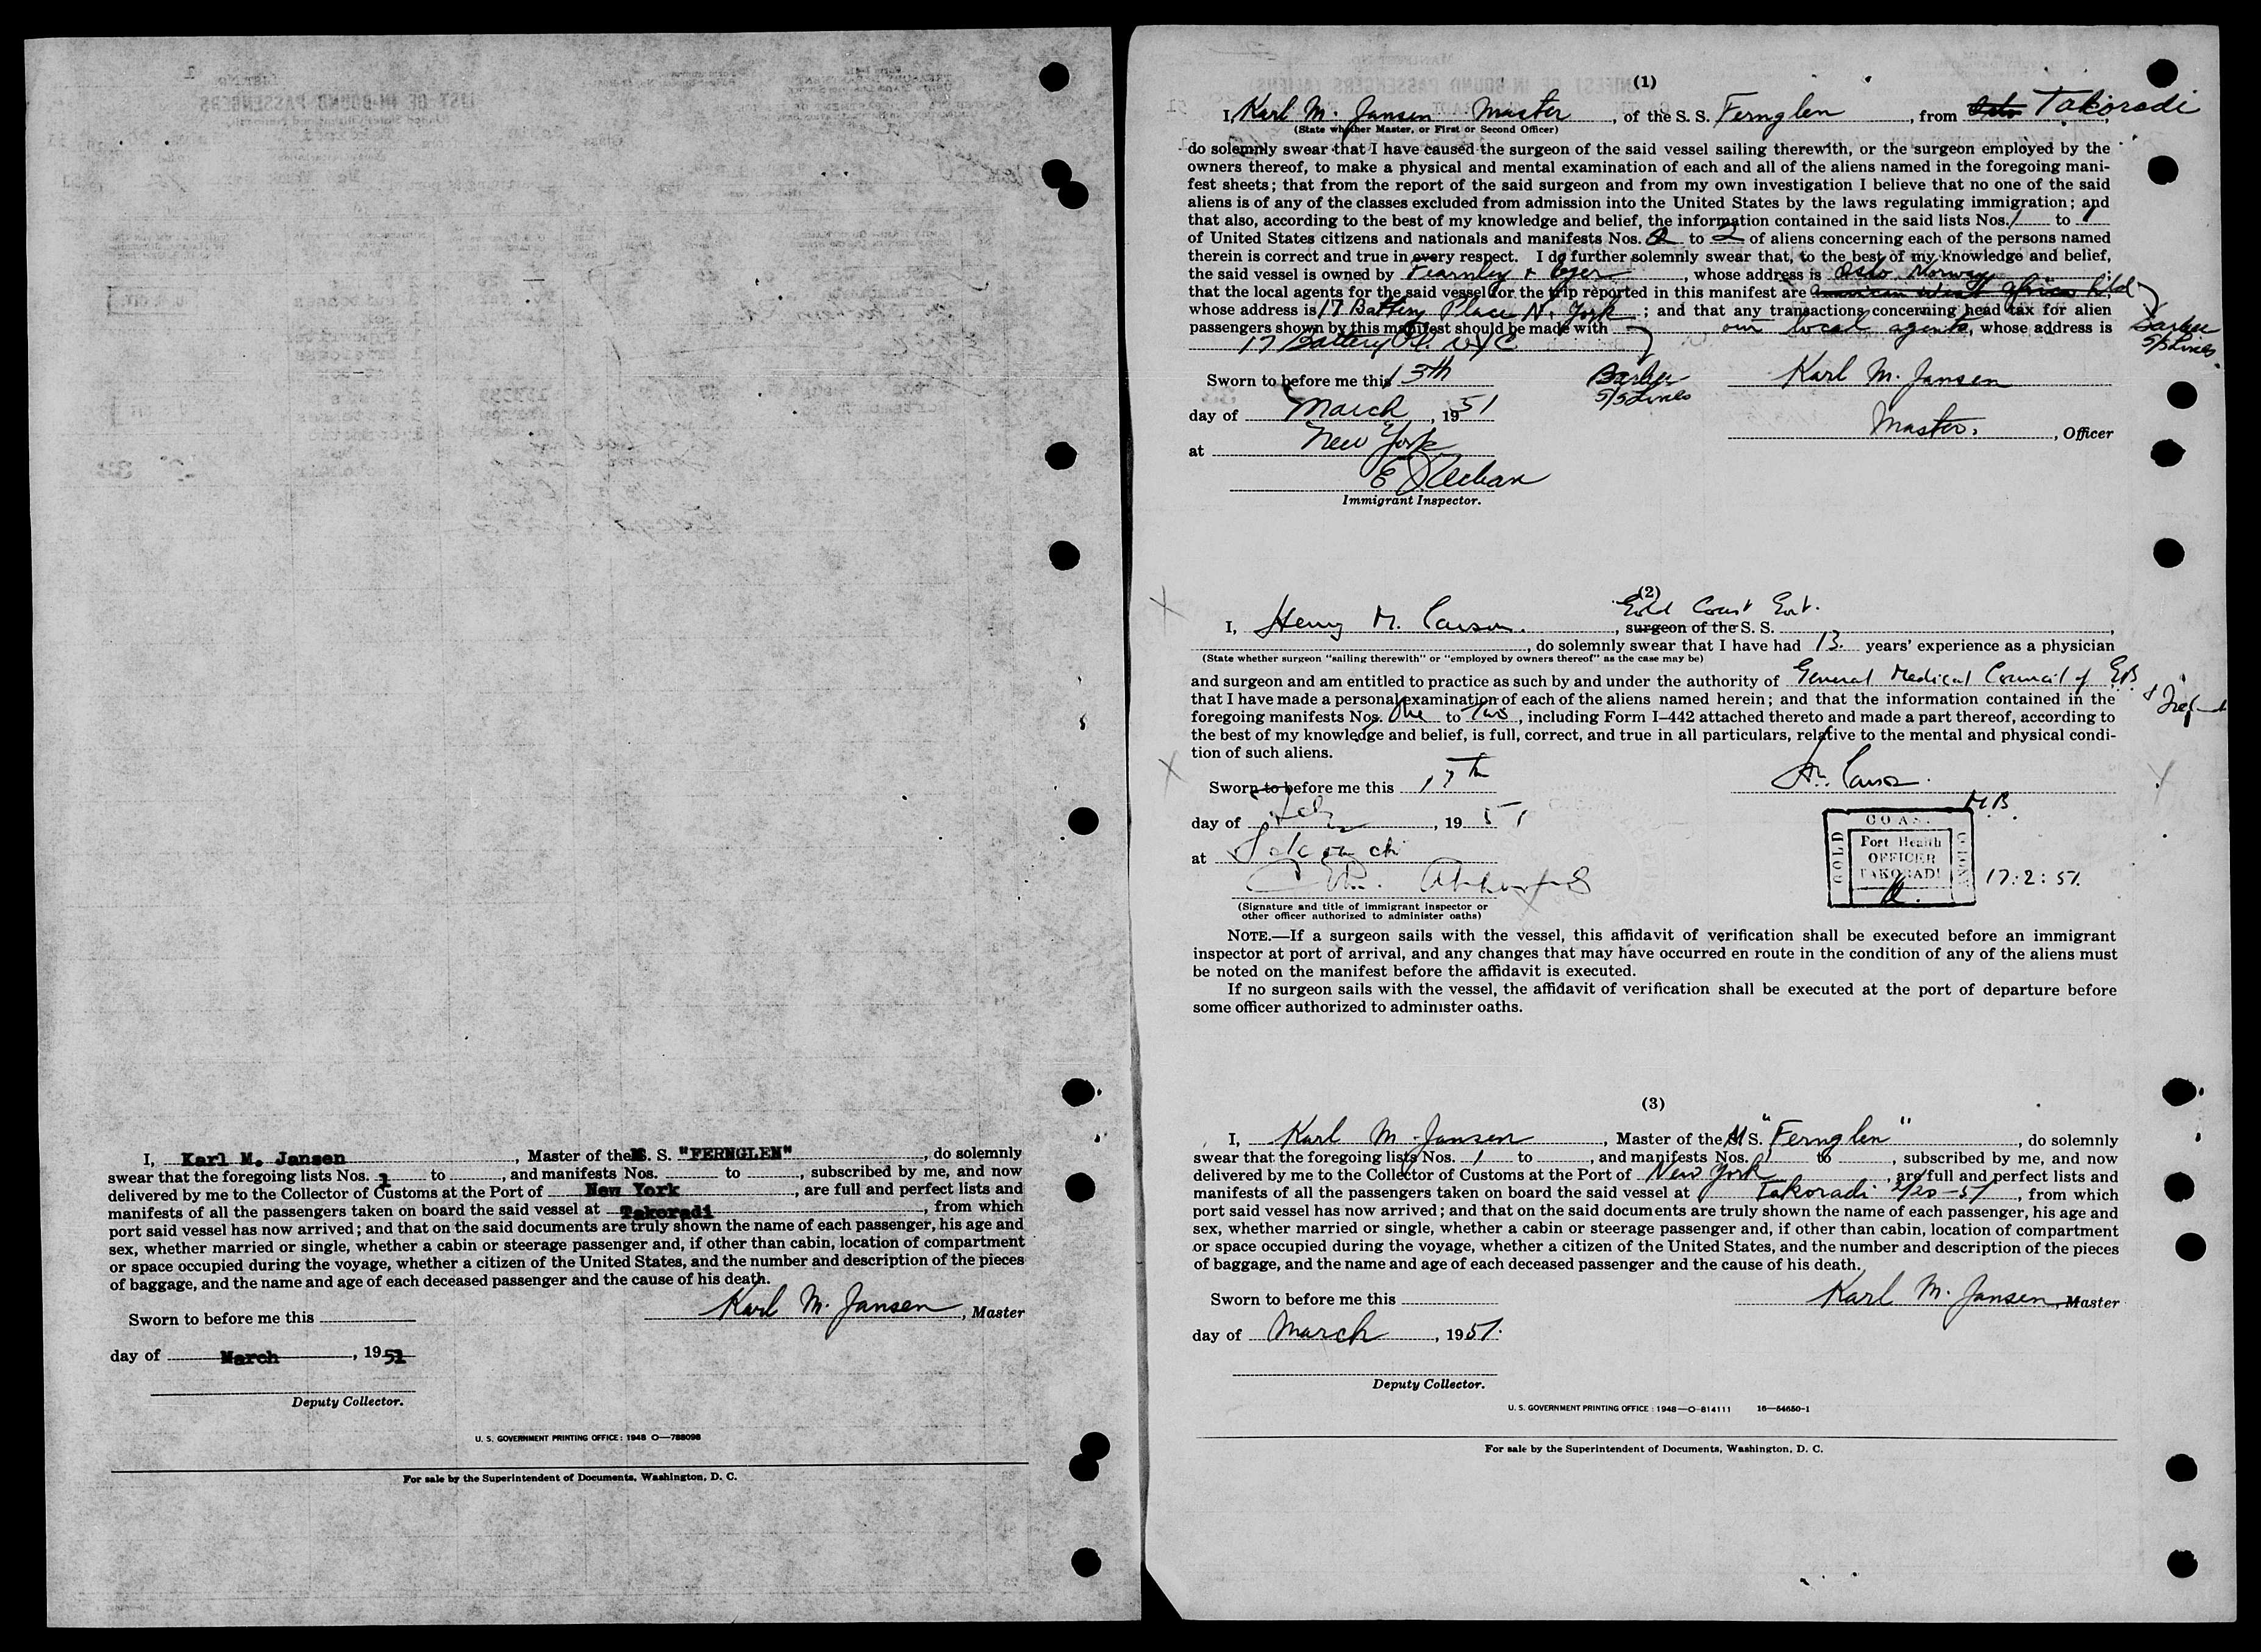 I, Karl M. Jansen, Master of the M. S. "FERNGLEN", do solemnly
swear that the foregoing lists Nos. 1 to , and manifests Nos. to , subscribed by me, and now
delivered by me to the Collector of Customs at the Port of New York, are full and perfect lists and
manifests of all the passengers taken on board the said vessel at Takoradi, from which
port said vessel has now arrived; and that on the said documents are truly shown the name of each passenger, his age and
sex, whether married or single, whether a cabin or steerage passenger and, if other than cabin, location of compartment
or space occupied during the voyage, whether a citizen of the United States, and the number and description of the pieces
of baggage, and the name and age of each deceased passenger and the cause of his death.
Karl M. Jansen, Master
Sworn to before me this
day of March, 1951
Deputy Collector.
U. S. GOVERNMENT PRINTING OFFICE : 1948 O—788098
For sale by the Superintendent of Documents, Washington, D. C.
(1)
I, Karl M. Jansen Master, of the S. S. Fernglen, from Oslo Takoradi
(State whether Master, or First or Second Officer)
do solemnly swear that I have caused the surgeon of the said vessel sailing therewith, or the surgeon employed by the
owners thereof, to make a physical and mental examination of each and all of the aliens named in the foregoing mani-
fest sheets; that from the report of the said surgeon and from my own investigation I believe that no one of the said
aliens is of any of the classes excluded from admission into the United States by the laws regulating immigration; and
that also, according to the best of my knowledge and belief, the information contained in the said lists Nos. 1 to 1
of United States citizens and nationals and manifests Nos. 2 to 2 of aliens concerning each of the persons named
therein is correct and true in every respect. I do further solemnly swear that, to the best of my knowledge and belief,
the said vessel is owned by Fearnley & Eger, whose address is Oslo Norway;
that the local agents for the said vessel for the trip reported in this manifest are American West Africa
whose address is 17 Battery Place N. York; and that any transactions concerning head tax for alien
passengers shown by this manifest should be made with our local agents, whose address is
Barber S/S Lines
17 Battery Pl. NYC
Sworn to before me this 13th
Barber S/S Lines
Karl M. Jansen
day of March, 1951
Master, Officer
at New York
Immigrant Inspector.
(2)
Gold Coast Govt.
I, Henry M. Carson, surgeon of the S. S.
, do solemnly swear that I have had 13 years' experience as a physician
(State whether surgeon "sailing therewith" or "employed by owners thereof" as the case may be)
and surgeon and am entitled to practice as such by and under the authority of General Medical Council of GB & Ireland
that I have made a personal examination of each of the aliens named herein; and that the information contained in the
foregoing manifests Nos. One to Two, including Form I-442 attached thereto and made a part thereof, according to
the best of my knowledge and belief, is full, correct, and true in all particulars, relative to the mental and physical condi-
tion of such aliens.
Sworn to before me this 17th
H. Carson
M.B.
day of Feb, 1951
at Takoradi
GOLD COAST
Port Health
OFFICER
TAKORADI
17.2.51.
(Signature and title of immigrant inspector or
other officer authorized to administer oaths)
NOTE.—If a surgeon sails with the vessel, this affidavit of verification shall be executed before an immigrant
inspector at port of arrival, and any changes that may have occurred en route in the condition of any of the aliens must
be noted on the manifest before the affidavit is executed.
If no surgeon sails with the vessel, the affidavit of verification shall be executed at the port of departure before
some officer authorized to administer oaths.
(3)
I, Karl M Jansen, Master of the M S. "Fernglen", do solemnly
swear that the foregoing lists Nos. 1 to , and manifests Nos. 1 to , subscribed by me, and now
delivered by me to the Collector of Customs at the Port of New York, are full and perfect lists and
manifests of all the passengers taken on board the said vessel at Takoradi 2/20-51, from which
port said vessel has now arrived; and that on the said documents are truly shown the name of each passenger, his age and
sex, whether married or single, whether a cabin or steerage passenger and, if other than cabin, location of compartment
or space occupied during the voyage, whether a citizen of the United States, and the number and description of the pieces
of baggage, and the name and age of each deceased passenger and the cause of his death.
Sworn to before me this
Karl M. Jansen, Master
day of March, 1951.
Deputy Collector.
U. S. GOVERNMENT PRINTING OFFICE : 1948—O-814111 16—54650-1
For sale by the Superintendent of Documents, Washington, D. C.